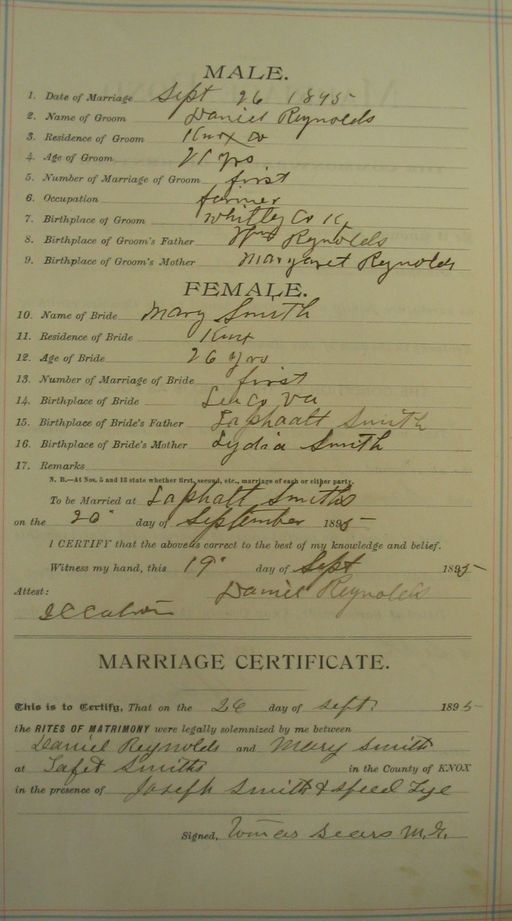 MALE.
1. Date of Marriage Sept 26 1895
2. Name of Groom Daniel Reynolds
3. Residence of Groom Knox Co
4. Age of Groom 21 yrs
5. Number of Marriage of Groom first
6. Occupation farmer
7. Birthplace of Groom Whitley Co Ky
8. Birthplace of Groom's Father Wm Reynolds
9. Birthplace of Groom's Mother Margaret Reynolds
FEMALE.
10. Name of Bride Mary Smith
11. Residence of Bride Knox
12. Age of Bride 26 yrs
13. Number of Marriage of Bride first
14. Birthplace of Bride Lee Co Va
15. Birthplace of Bride's Father Laphaalt Smith
16. Birthplace of Bride's Mother Lydia Smith
17. Remarks
N. B.—At Nos. 5 and 13 state whether first, second, etc., marriage of each or either party.
To be Married at Laphalt Smiths
on the 26" day of September 1895
I CERTIFY that the above is correct to the best of my knowledge and belief.
Witness my hand, this 19" day of Sept 1895
Attest: Daniel Reynolds
MARRIAGE CERTIFICATE.
This is to Certify, That on the 26 day of sept. 1895
the RITES OF MATRIMONY were legally solemnized by me between
Daniel Reynolds and Mary Smith
at Smiths in the County of KNOX
in the presence of Joseph Smith & Speed Lye
Signed, Sears M.G.